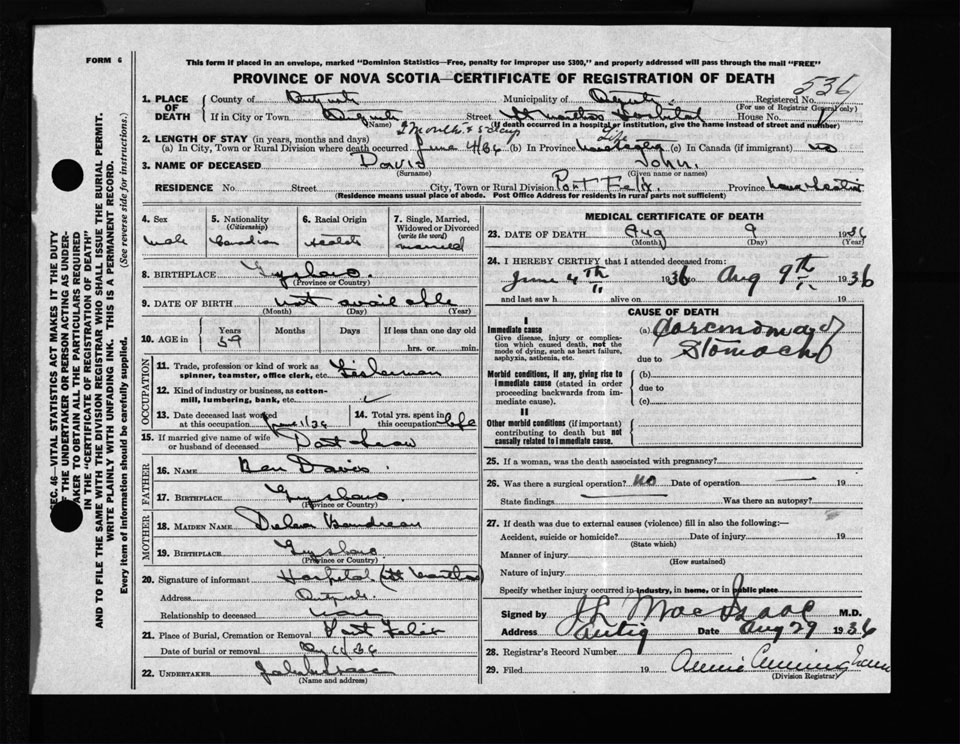 FORM 6
This form if placed in an envelope, marked "Dominion Statistics—Free, penalty for improper use $300," and properly addressed will pass through the mail "FREE"
PROVINCE OF NOVA SCOTIA—CERTIFICATE OF REGISTRATION OF DEATH
536
1. PLACE OF DEATH County of Municipality of Registered No.
(For use of Registrar General only)
If in City or Town Street St Marthas Hospital House No.
(Name) (If death occurred in a hospital or institution, give the name instead of street and number)
2. LENGTH OF STAY (in years, months and days) 2 Months & 5 days Life
(a) In City, Town or Rural Division where death occurred June 4/36 (b) In Province (c) In Canada (if immigrant) no
3. NAME OF DECEASED David John
(Surname) (Given name or names)
RESIDENCE No. Street City, Town or Rural Division Port Felix Province Nova Scotia
(Residence means usual place of abode. Post Office Address for residents in rural parts not sufficient)
4. Sex
male
5. Nationality
(Citizenship)
Canadian
6. Racial Origin
7. Single, Married, Widowed or Divorced
(write the word)
married
8. BIRTHPLACE Guysboro
(Province or Country)
9. DATE OF BIRTH not available
(Month) (Day) (Year)
10. AGE in Years Months Days If less than one day old
59 hrs. or min.
OCCUPATION
11. Trade, profession or kind of work as spinner, teamster, office clerk, etc. Fisherman
12. Kind of industry or business, as cotton-mill, lumbering, bank, etc.
13. Date deceased last worked at this occupation June 1/36
14. Total yrs. spent in this occupation life
15. If married give name of wife or husband of deceased
FATHER
16. NAME Ben Davis
17. BIRTHPLACE Guysboro
(Province or Country)
MOTHER
18. MAIDEN NAME Boudreau
19. BIRTHPLACE Guysboro
(Province or Country)
20. Signature of informant Hospital (St Marthas)
Address
Relationship to deceased none
21. Place of Burial, Cremation or Removal Port Felix
Date of burial or removal
22. UNDERTAKER
(Name and address)
MEDICAL CERTIFICATE OF DEATH
23. DATE OF DEATH Aug 9 1936
(Month) (Day) (Year)
24. I HEREBY CERTIFY that I attended deceased from:
June 4th 1936 to Aug 9th 1936
and last saw h alive on 19
CAUSE OF DEATH
I
Immediate cause
Give disease, injury or complication which caused death, not the mode of dying, such as heart failure, asphyxia, asthenia, etc.
(a) Carcinoma of
Stomach
due to
Morbid conditions, if any, giving rise to immediate cause (stated in order proceeding backwards from immediate cause).
(b)
due to
(c)
II
Other morbid conditions (if important) contributing to death but not causally related to immediate cause.
25. If a woman, was the death associated with pregnancy?
26. Was there a surgical operation? no Date of operation 19
State findings Was there an autopsy?
27. If death was due to external causes (violence) fill in also the following:—
Accident, suicide or homicide? Date of injury 19
(State which)
Manner of injury
(How sustained)
Nature of injury
Specify whether injury occurred in industry, in home, or in public place
Signed by J L MacIsaac M.D.
Address Antig Date Aug 29 1936
28. Registrar's Record Number
29. Filed 19 Annie Cunningham
(Division Registrar)
SEC. 46—VITAL STATISTICS ACT MAKES IT THE DUTY
OF THE UNDERTAKER OR PERSON ACTING AS UNDER-
TAKER TO OBTAIN ALL THE PARTICULARS REQUIRED
IN THE "CERTIFICATE OF REGISTRATION OF DEATH"
AND TO FILE THE SAME WITH THE DIVISION REGISTRAR WHO SHALL ISSUE THE BURIAL PERMIT.
WRITE PLAINLY WITH UNFADING INK. THIS IS A PERMANENT RECORD.
Every item of information should be carefully supplied. (See reverse side for instructions.)